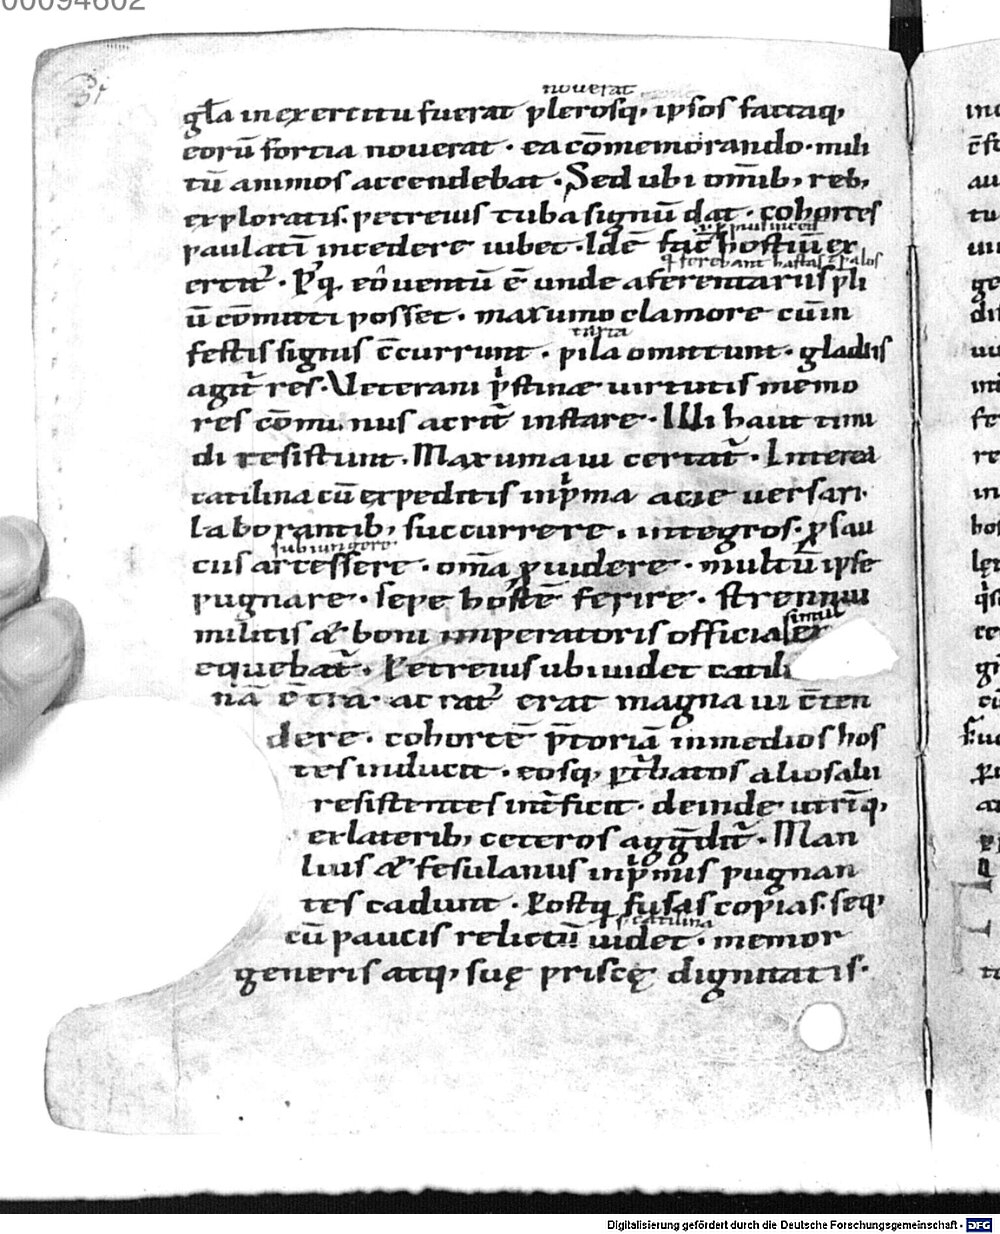 00094602
nouerat
gl̄a in exercitu fuerat plerosq; ipsos factaq;
eorū fortia nouerat · ea cōmemorando · mili
tū animos accendebat · Sed ubi om̄ib; reb;
exploratis · petreius tuba signū dat · cohortes
paulatī incedere iubet · Idē fac̄ hostiū ex
q̄ ferebant hastas palos
ercit᷒ · P᷒q̄ eo uentū ē unde a ferentariis p̄li
ū cōmitti posset · maxumo clamore cū in
festis signis c̄currunt · pila omittunt · gladiis
agit᷒ res · Veterani p̄stinae uirtutis memo
res cōminus acrit̄ instare · Illi haut timi
di resistunt · Maxuma ui certat᷒ · Interea
catilina cū expeditis in p̄ma acie uersari ·
laborantib; succurrere · integros · p̱ sau
subiungere
cius arcessere · om̄a p̱uidere · multū ipse
pugnare · sepe hostē ferire · strennui
simul
militis & boni imperatoris officia ex
equebat᷒ · Petreius ubi uidet catili
nā c̄tra · ac rat᷒ erat magna ui c̄ten
dere · cohortē p̄toriā in medios hos
tes inducit · eosq; p̱t̄batos alios ali
resistentes int̄ficit · deinde utrīq;
ex laterib; ceteros aggr̄dit᷒ · Man
lius & fesulanus in p̄mis pugnan
tes cadunt · Postq̄ fusas copias · seq;
s catilina
cū paucis relictū uidet · memor
generis atq; suę priscę dignitatis ·
Digitalisierung gefördert durch die Deutsche Forschungsgemeinschaft · DFG